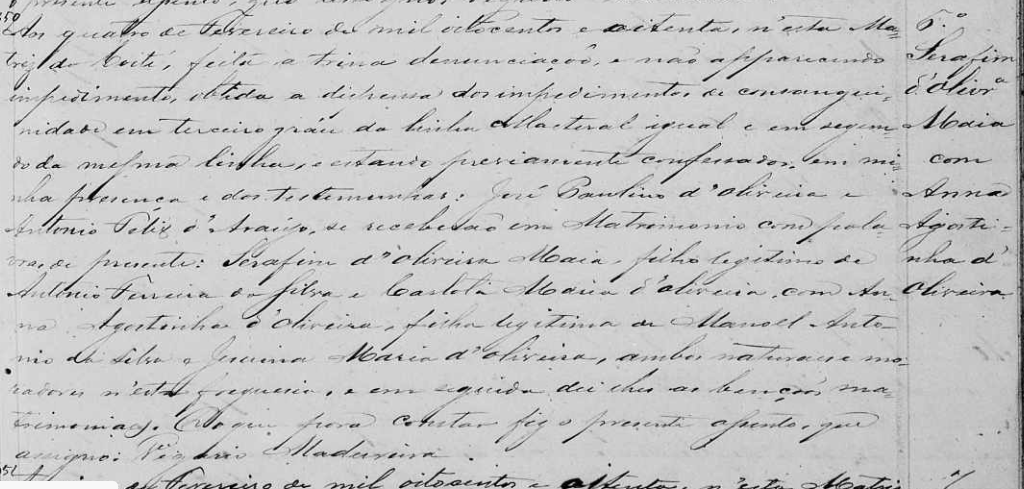 o presente assento, que
50
Aos quatro de Fevereiro de mil oitocentos e oitenta, n'esta Ma-
triz do Coité, feita a trina denunciação, e não apparecendo
impedimento, obtida a dispensa dos impedimentos de consangui-
nidade em terceiro gráu da linha Materal igual e em segun-
do da mesma linha, e estando previamente confessados, em mi-
nha presença e dos testemunhas: José Paulino d'Oliveira e
Antonio Feliz d'Araújo, se receberão em Matrimonio com pala-
vras de presente: Serafim d'Oliveira Maia, filho legitimo de
Antonio Ferreira da Silva e Carlota Maria d'Oliveira, com An-
na Agostinha d'Oliveira, filha legitima de Manoel Anto-
nio da Silva e Maria d'Oliveira, ambos naturaes e mo-
radores n'esta freguesia, e em seguida dei lhes as bençãos ma-
trimoniaes. E o que para constar fiz o presente assento, que
assigno: Vigario Madureira
51
de Fevereiro de mil oitocentos e oitenta, n'esta Matri
6.º
Serafim
d'Olivrª
Maia
com
Anna
Agosti-
nha d'
Oliveira
7